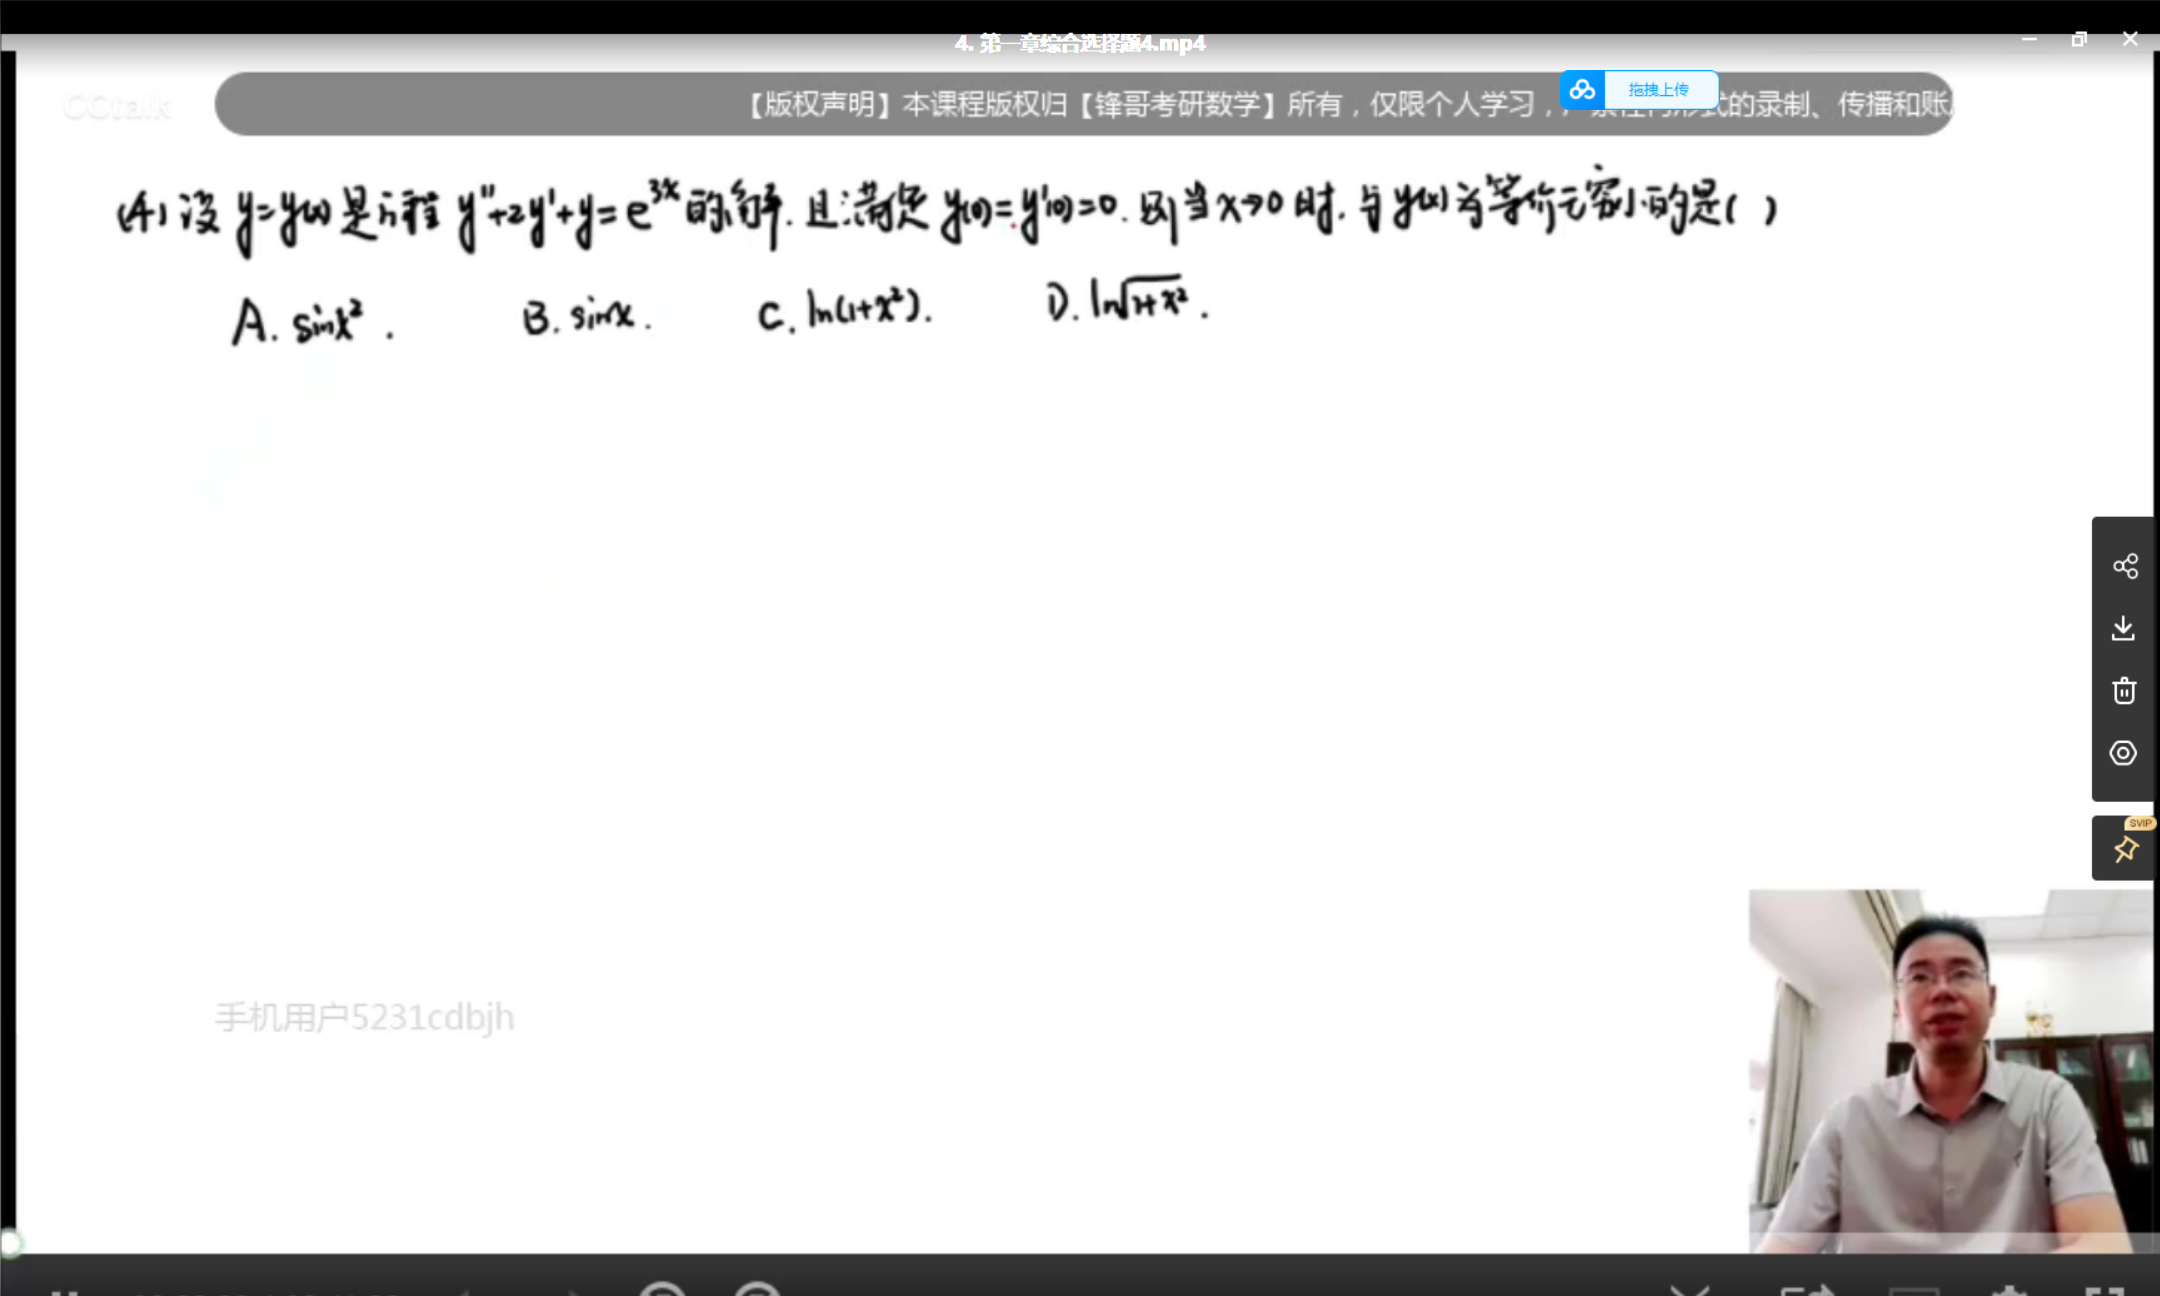 4. 第一章综合选择题4.mp4
CCtalk
【版权声明】本课程版权归【锋哥考研数学】所有，仅限个人学习，
式的录制、传播和账
拖拽上传
(4) 设 y=y(x) 是方程 y''+2y'+y=e^{3x} 的解. 且满足 y(0)=y'(0)=0. 则当 x→0 时. 与 y(x) 为等价无穷小的是( )
A. sinx². B. sinx. C. ln(1+x²). D. ln√(1+x²).
SVIP
手机用户5231cdbjh